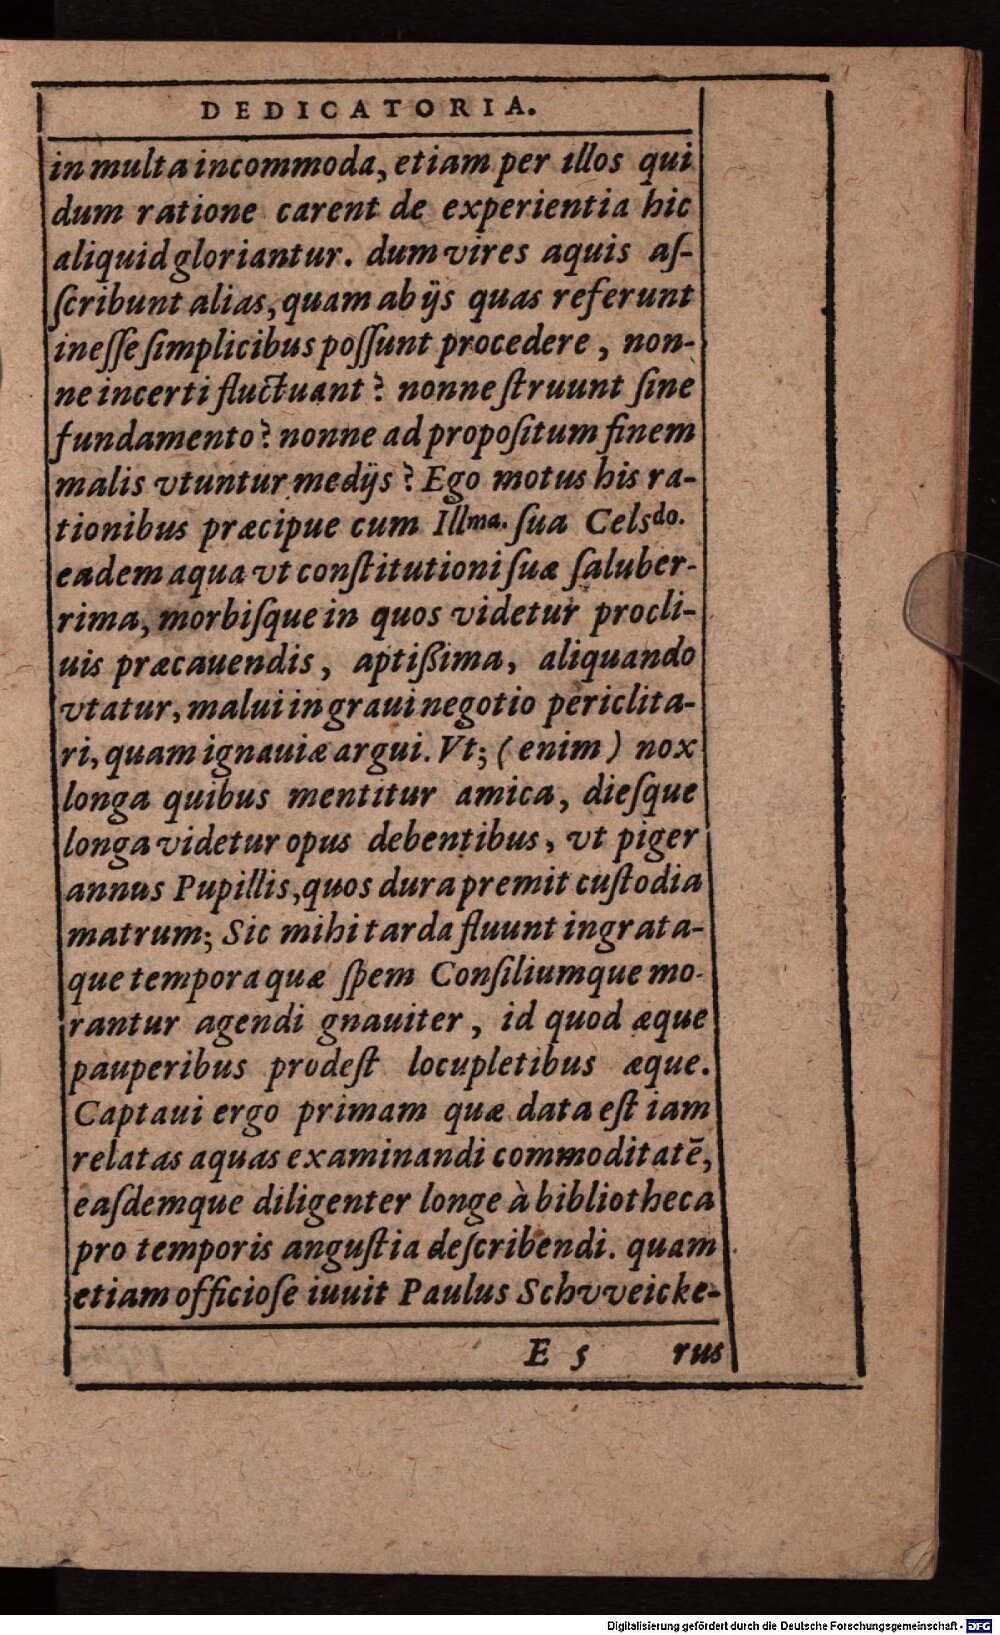 DEDICATORIA.
in multa incommoda, etiam per illos qui
dum ratione carent de experientia hic
aliquid gloriantur. dum vires aquis aſ-
ſcribunt alias, quam ab ijs quas referunt
ineſſe ſimplicibus poſſunt procedere, non-
ne incerti fluctuant? nonne ſtruunt ſine
fundamento? nonne ad propoſitum finem
malis vtuntur medijs? Ego motus his ra-
tionibus præcipue cum Illma. ſua Celsdo.
eadem aqua vt conſtitutioni ſuæ ſaluber-
rima, morbiſque in quos videtur procli-
uis præcauendis, aptißima, aliquando
vtatur, malui in graui negotio periclita-
ri, quam ignauiæ argui. Vt; (enim) nox
longa quibus mentitur amica, dieſque
longa videtur opus debentibus, vt piger
annus Pupillis, quos dura premit cuſtodia
matrum; Sic mihi tarda fluunt ingrata-
que tempora quæ ſpem Conſiliumque mo-
rantur agendi gnauiter, id quod æque
pauperibus prodeſt locupletibus æque.
Captaui ergo primam quæ data eſt iam
relatas aquas examinandi commoditatē,
eaſdemque diligenter longe à bibliotheca
pro temporis anguſtia deſcribendi. quam
etiam officioſe iuuit Paulus Schvveicke-
E 5 rus
Digitalisierung gefördert durch die Deutsche Forschungsgemeinschaft - DFG